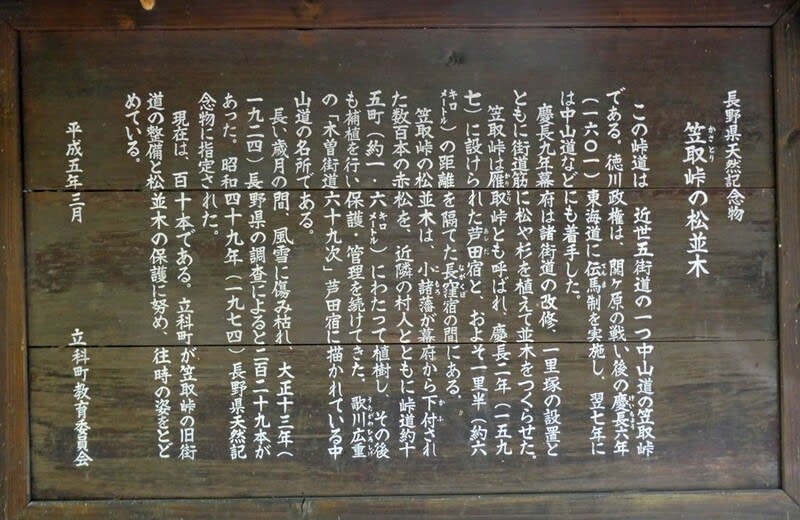 長野県天然記念物
笠取峠の松並木
かさとり
この峠道は、近世五街道の一つ中山道の笠取峠
である。徳川政権は、関ケ原の戦い後の慶長六年
けいちょう
(一六〇一)東海道に伝馬制を実施し、翌七年に
は中山道などにも着手した。
慶長九年幕府は諸街道の改修、一里塚の設置と
ともに街道筋に松や杉を植えて並木をつくらせた。
笠取峠は雁取峠とも呼ばれ、慶長二年(一五九
かりとり
七)に設けられた芦田宿と、およそ一里半(約六
あしだ
キロメートル)の距離を隔てた長窪宿の間にある。
ながくぼ
笠取峠の松並木は、小諸藩が幕府から下付され
こもろ
かふ
た数百本の赤松を、近隣の村人とともに峠道約十
五町(約一・六キロメートル)にわたって植樹し、その後
も補植を行い保護・管理を続けてきた。歌川広重
うたがわひろしげ
の「木曽街道六十九次」芦田宿に描かれている中
山道の名所である。
長い歳月の間、風雪に傷み枯れ、大正十三年(
一九二四)長野県の調査によると二百二十九本が
あった。昭和四十九年(一九七四)長野県天然記
念物に指定された。
現在は、百十本である。立科町が笠取峠の旧街
道の整備と松並木の保護に努め、往時の姿をとど
めている。
平成五年三月
立科町教育委員会